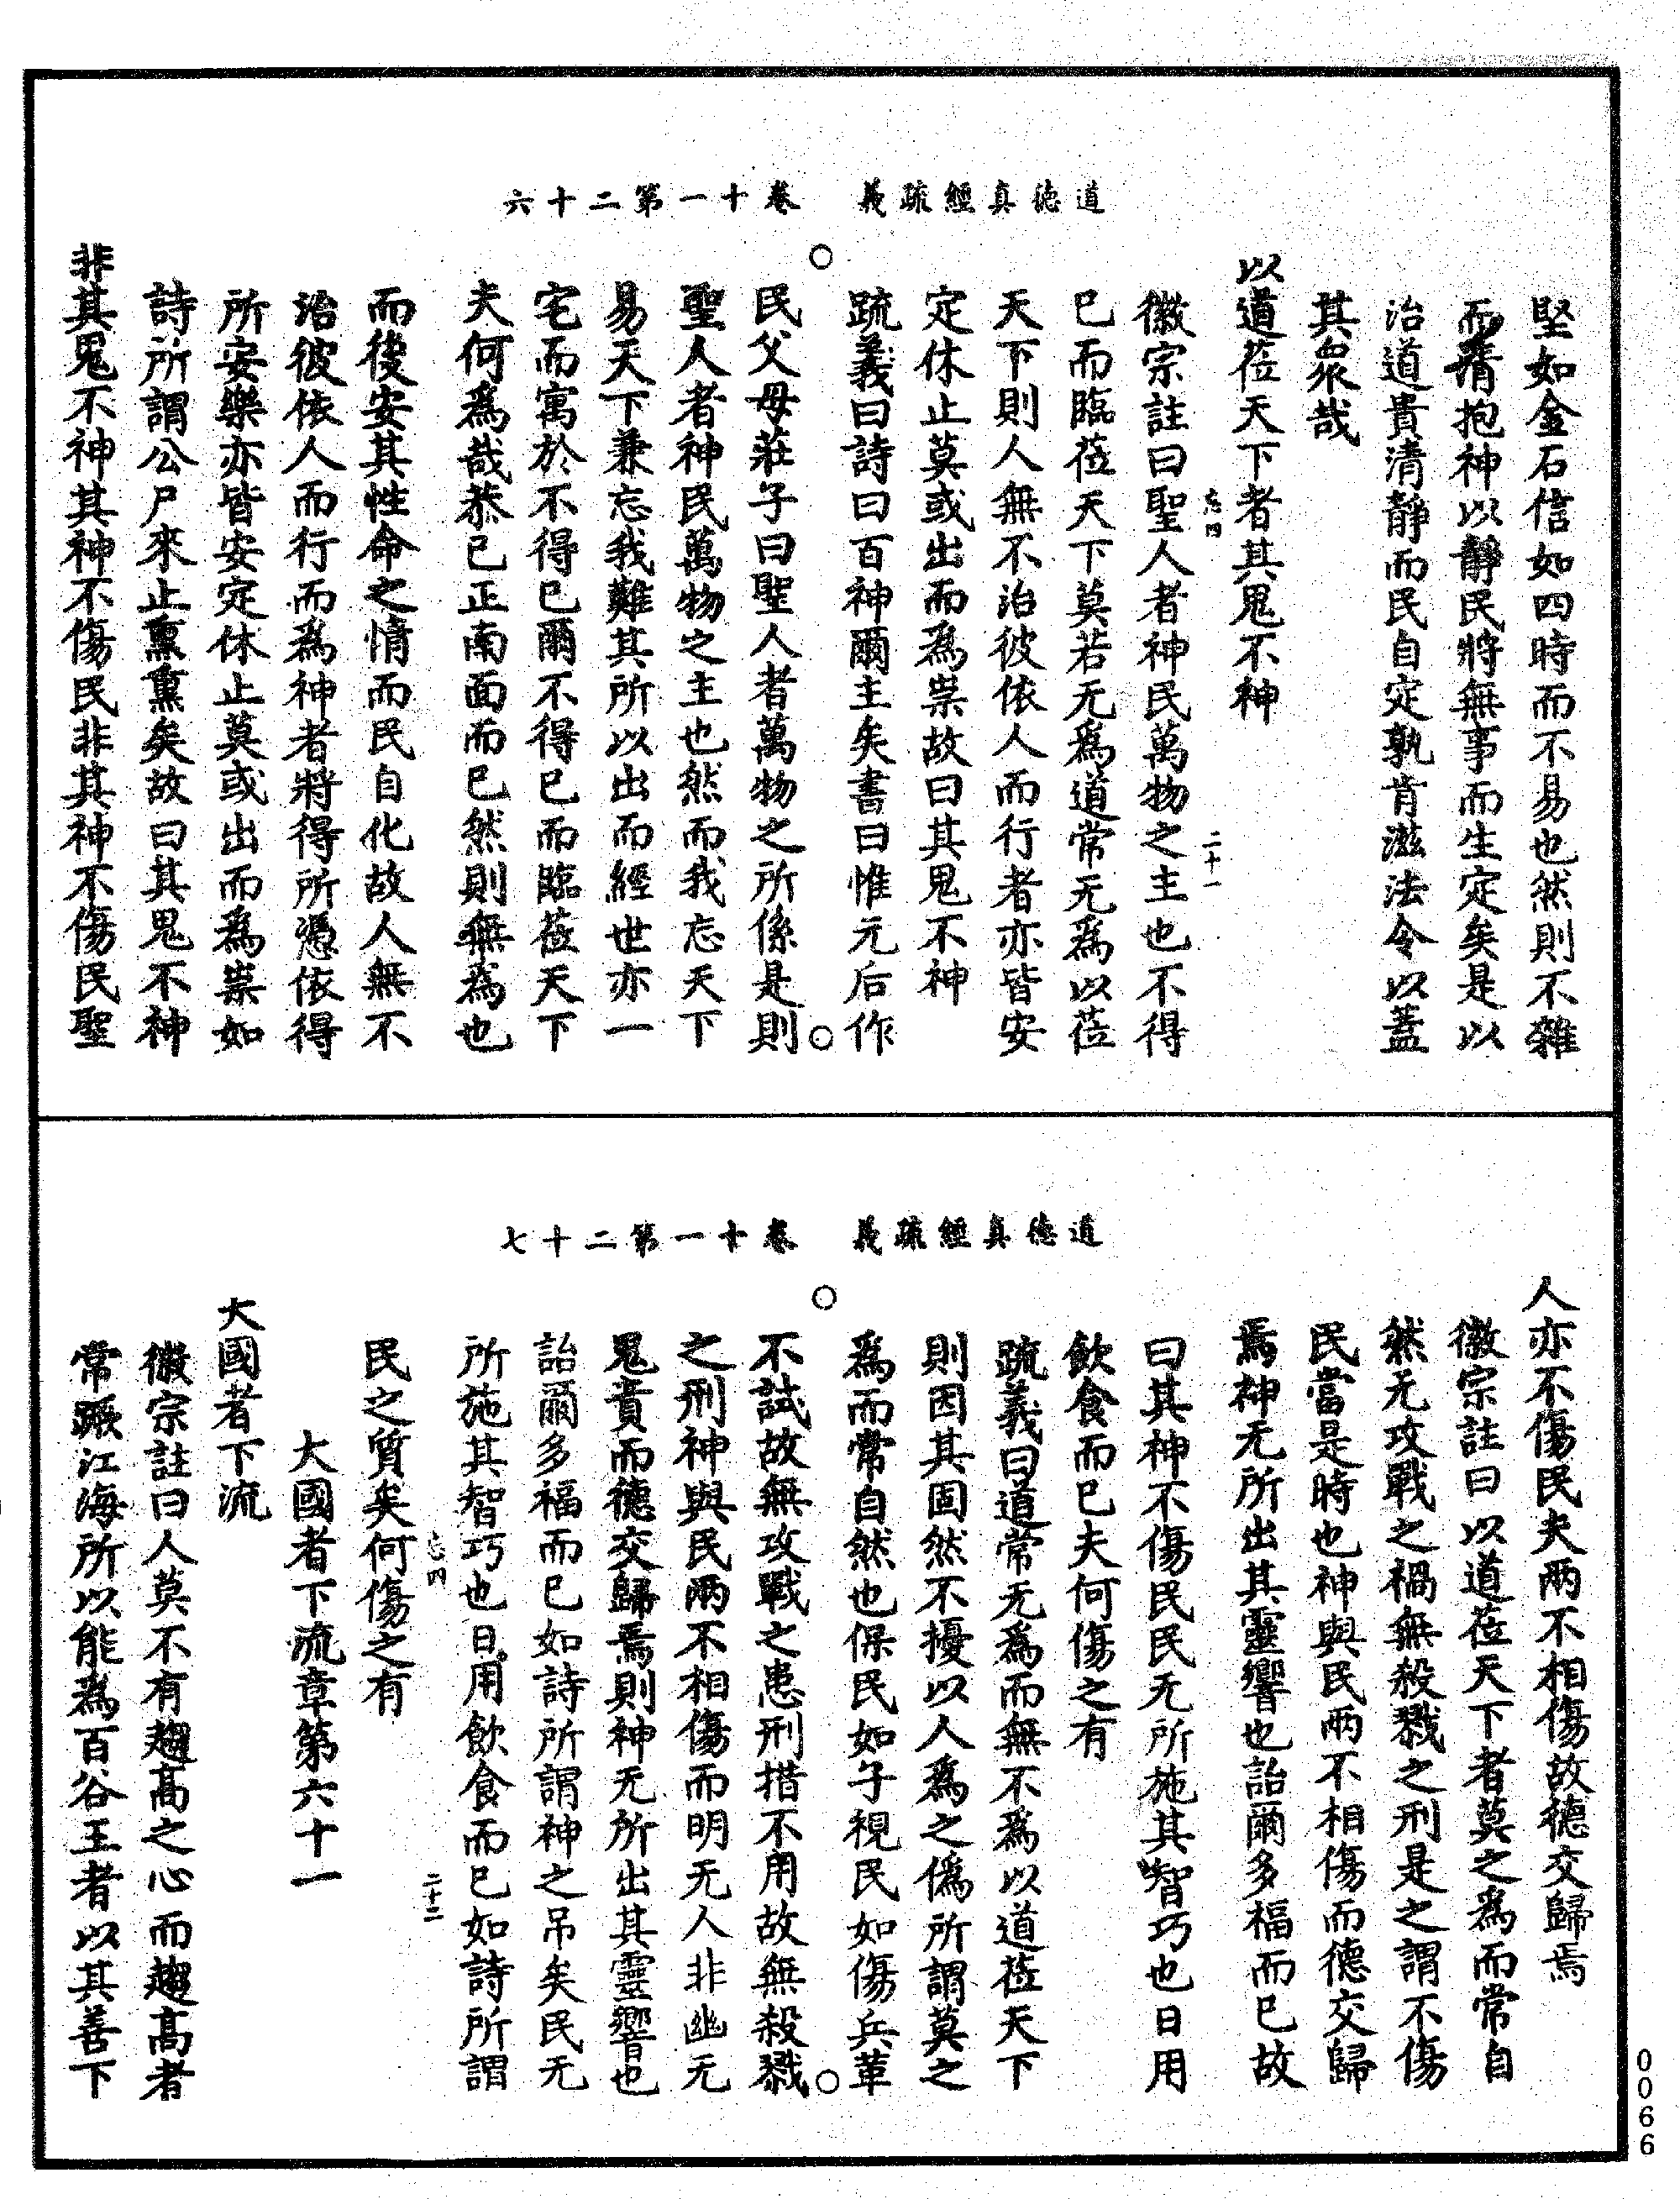 道德真經疏義　卷十一第二十六
堅如金石信如四時而不易也然則不雜
而清抱神以靜民將無事而生定矣是以
治道貴清靜而民自定孰肯滋法令以蓋
其衆哉
以道莅天下者其鬼不神
忘四　二十一
徽宗註曰聖人者神民萬物之主也不得
已而臨莅天下莫若无爲道常无爲以莅
天下則人無不治彼依人而行者亦皆安
定休止莫或出而爲祟故曰其鬼不神
疏義曰詩曰百神爾主矣書曰惟元后作
民父母莊子曰聖人者萬物之所係是則
聖人者神民萬物之主也然而我忘天下
易天下兼忘我難其所以出而經世亦一
宅而寓於不得已爾不得已而臨莅天下
夫何爲哉恭已正南面而已然則無爲也
而後安其性命之情而民自化故人無不
治彼依人而行而爲神者將得所憑依得
所安樂亦皆安定休止莫或出而爲祟如
詩所謂公尸來止熏熏矣故曰其鬼不神
非其鬼不神其神不傷民非其神不傷民聖
道德真經疏義　卷十一第二十七
人亦不傷民夫兩不相傷故德交歸焉
徽宗註曰以道莅天下者莫之爲而常自
然无攻戰之禍無殺戮之刑是之謂不傷
民當是時也神與民兩不相傷而德交歸
焉神无所出其靈響也詒爾多福而已故
曰其神不傷民民无所施其智巧也日用
飲食而已夫何傷之有
疏義曰道常无爲而無不爲以道莅天下
則因其固然不擾以人爲之僞所謂莫之
爲而常自然也保民如子視民如傷兵革
不試故無攻戰之患刑措不用故無殺戮
之刑神與民兩不相傷而明无人非幽无
鬼責而德交歸焉則神无所出其靈響也
詒爾多福而已如詩所謂神之吊矣民无
所施其智巧也日用飲食而已如詩所謂
忘四　二十二
民之質矣何傷之有
大國者下流章第六十一
大國者下流
徽宗註曰人莫不有趨高之心而趨高者
常蹶江海所以能爲百谷王者以其善下
0066